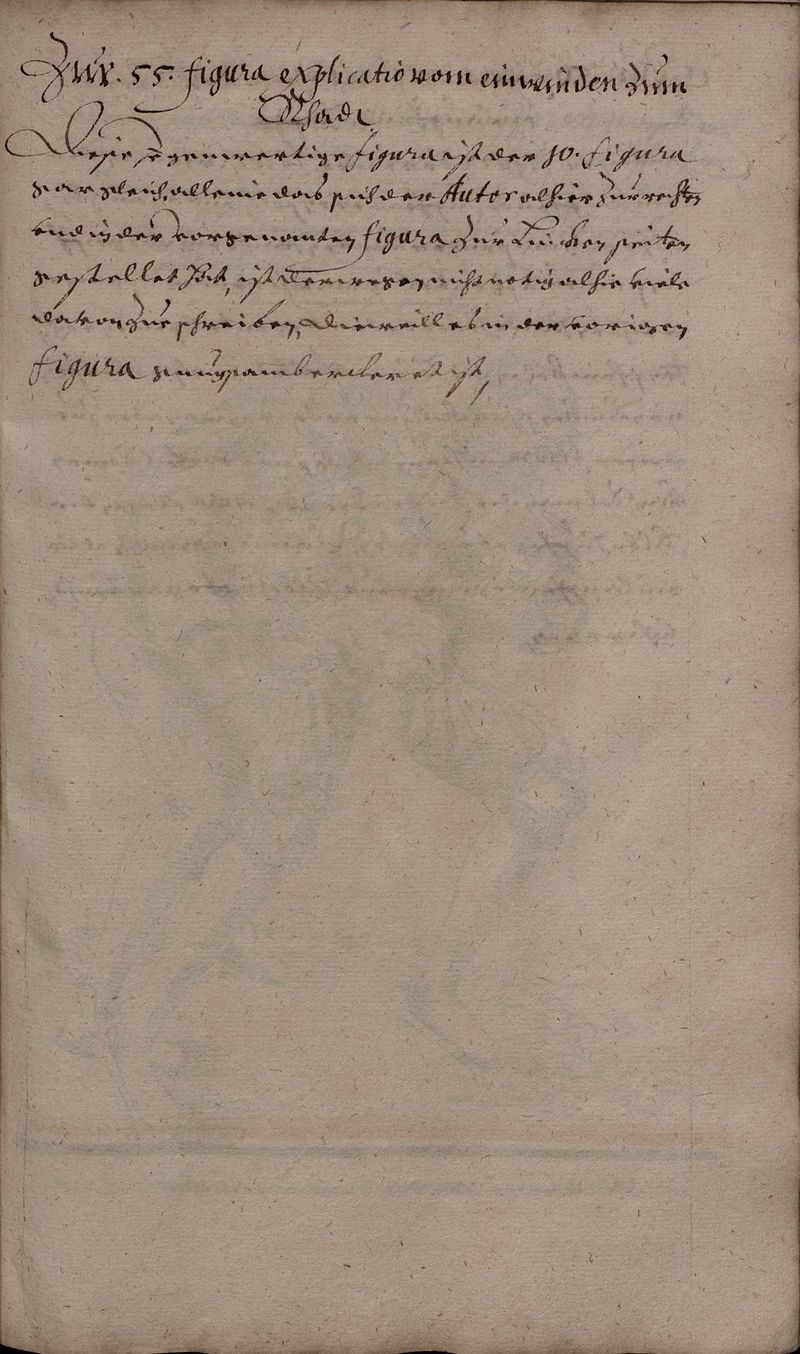 Zur. 55. figura explicatio vom einwinden zum
Rhade
Diese gegenwertige figura ist der 10. figura
gar gleich, alleine das sich der Autor alhier zur rechten
und in der vorgenanten figura zur Lincken seiten
gestellet hat, ist derwegen nicht nötig alhie viele
davon zue schreiben, dieweill es in der vorigen
figura gnugsam berckleret ist,